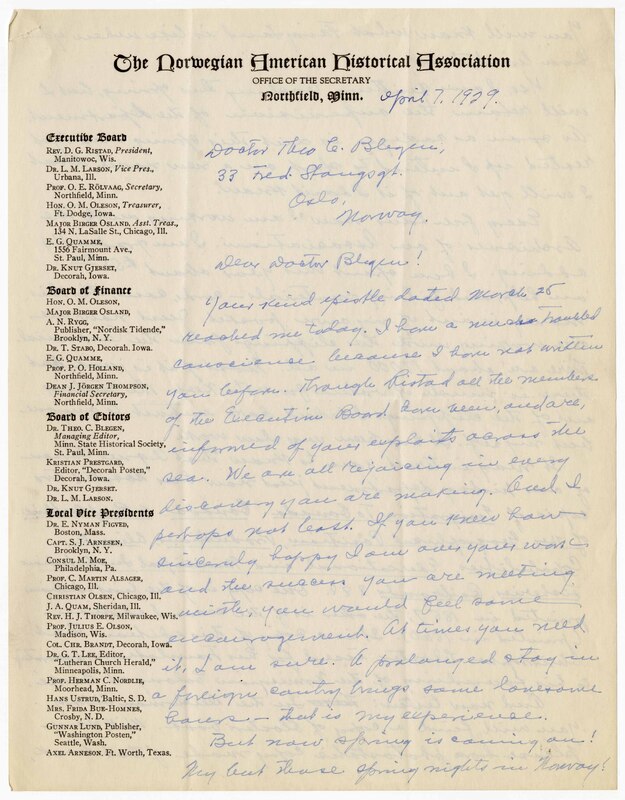 The Norwegian American Historical Association
OFFICE OF THE SECRETARY
Northfield, Minn.
April 7, 1929.
Executive Board
REV. D. G. RISTAD, President,
Manitowoc, Wis.
DR. L. M. LARSON, Vice Pres.,
Urbana, Ill.
PROF. O. E. RÖLVAAG, Secretary,
Northfield, Minn.
HON. O. M. OLESON, Treasurer,
Ft. Dodge, Iowa.
MAJOR BIRGER OSLAND, Asst. Treas.,
134 N. LaSalle St., Chicago, Ill.
E. G. QUAMME,
1556 Fairmount Ave.,
St. Paul, Minn.
DR. KNUT GJERSET,
Decorah, Iowa.
Board of Finance
HON. O. M. OLESON,
MAJOR BIRGER OSLAND,
A. N. RYGG,
Publisher, "Nordisk Tidende,"
Brooklyn, N. Y.
DR. T. STABO, Decorah, Iowa.
E. G. QUAMME,
PROF. P. O. HOLLAND,
Northfield, Minn.
DEAN J. JÖRGEN THOMPSON,
Financial Secretary,
Northfield, Minn.
Board of Editors
DR. THEO. C. BLEGEN,
Managing Editor,
Minn. State Historical Society,
St. Paul, Minn.
KRISTIAN PRESTGARD,
Editor, "Decorah Posten,"
Decorah, Iowa.
DR. KNUT GJERSET.
DR. L. M. LARSON.
Local Vice Presidents
DR. E. NYMAN FIGVED,
Boston, Mass.
CAPT. S. J. ARNESEN,
Brooklyn, N. Y.
CONSUL M. MOE,
Philadelphia, Pa.
PROF. C. MARTIN ALSAGER,
Chicago, Ill.
CHRISTIAN OLSEN, Chicago, Ill.
J. A. QUAM, Sheridan, Ill.
REV. H. J. THORPE, Milwaukee, Wis.
PROF. JULIUS E. OLSON,
Madison, Wis.
COL. CHR. BRANDT, Decorah, Iowa.
DR. G. T. LEE, Editor,
"Lutheran Church Herald,"
Minneapolis, Minn.
PROF. HERMAN C. NORDLIE,
Moorhead, Minn.
HANS USTRUD, Baltic, S. D.
MRS. FRIDA BUE-HOMNES,
Crosby, N. D.
GUNNAR LUND, Publisher,
"Washington Posten,"
Seattle, Wash.
AXEL ARNESON, Ft. Worth, Texas.
Doctor Theo C. Blegen,
33 Fred. Stangsgt.
Oslo,
Norway.
Dear Doctor Blegen!
Your kind epistle dated March 25
reached me today. I have a much troubled
conscience because I have not written
you before. Through Ristad all the members
of the Executive Board have been, and are,
informed of your exploits across the
sea. We are all rejoicing in every
discovery you are making. And I
perhaps not least. If you knew how
sincerely happy I am over your work
and the success you are meeting
with, you would feel some
encouragement. At times you need
it, I am sure. A prolonged stay in
a foreign contry brings some lonesome
hours – that is my experience.
But now spring is coming on!
My but those spring nights in Norway!